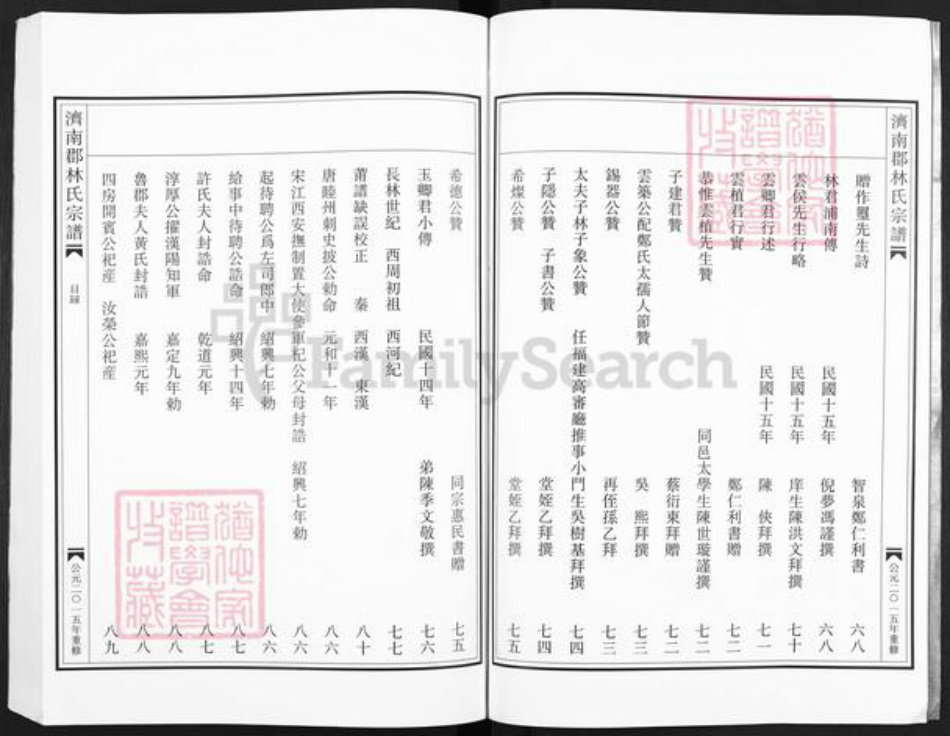 濟南郡林氏宗譜
公元二〇一五年重修
贈作璽先生詩 智泉鄭仁利書 六八
林君浦南傳 民國十五年 倪夢馮謹撰 六八
雲侯先生行略 民國十五年 庠生陳洪文拜撰 七十
雲卿君行述 民國十五年 陳 俠拜撰 七一
雲植君行實 鄭仁利書贈 七二
恭惟雲植先生贊 同邑太學生陳世璇謹撰 七二
子建君贊 蔡衍東拜贈 七二
雲築公配鄭氏太孺人節贊 吳 熙拜撰 七三
錫器公贊 再侄孫乙拜 七三
太夫子林子象公贊 任福建高審廳推事小門生吳樹基拜撰 七四
子隱公贊 子書公贊 堂姪乙拜撰 七四
希燦公贊 堂姪乙拜撰 七五
希德公贊 同宗惠民書贈 七五
玉卿君小傳 民國十四年 弟陳季文敬撰 七六
長林世紀 西周初祖 西河紀 七七
莆譜缺誤校正 秦 西漢 東漢 八十
唐睦州刺史披公勅命 元和十一年 八六
宋江西安撫制置大使參軍杞公父母封誥 紹興七年勅 八六
起待聘公爲左司郎中 紹興七年勅 八六
給事中待聘公誥命 紹興十四年 八七
許氏夫人封誥命 乾道元年 八七
淳厚公擢漢陽知軍 嘉定九年勅 八八
魯郡夫人黃氏封誥 嘉熙元年 八八
四房開賓公祀産 汝榮公祀産 八九
濟南郡林氏宗譜
目録
公元二〇一五年重修
FamilySearch